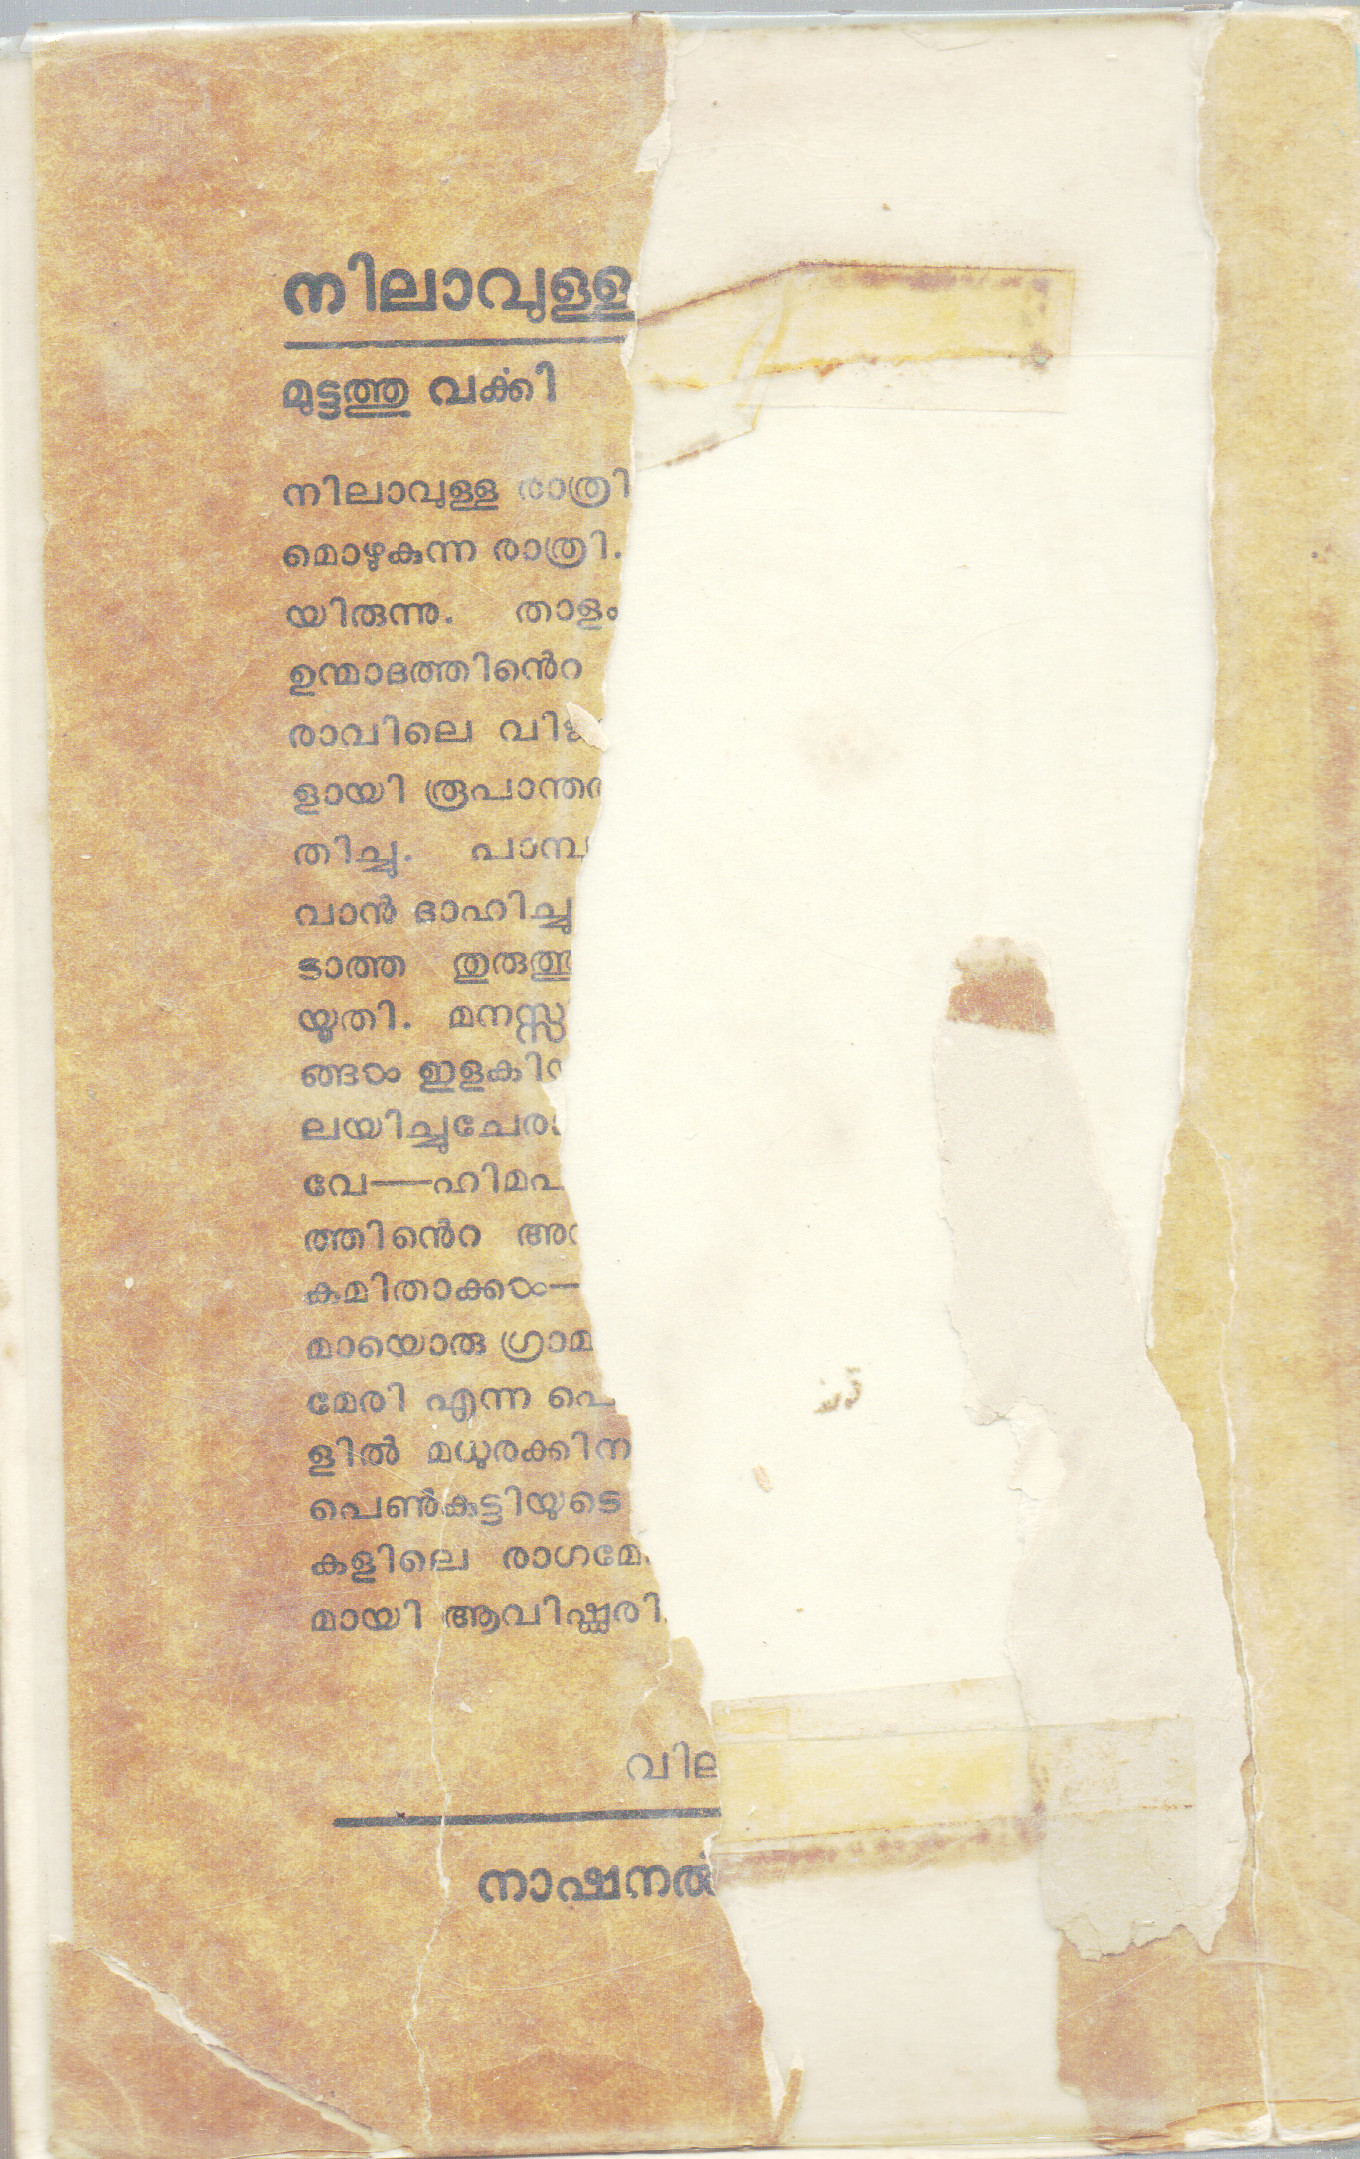 നിലാവുള്ള
മുട്ടത്തു വർക്കി
നിലാവുള്ള രാത്രി
മൊഴുകുന്ന രാത്രി.
യിരുന്നു. താളം
ഉന്മാദത്തിൻെറ
രാവിലെ
ളായി രൂപാന്തര
തിച്ചു. പാമ്പ
വാൻ ദാഹിച്ചു
ടാത്ത തുരുത്തു
യൂതി. മനസ്സ
ങ്ങൾ ഇളകി
ലയിച്ചുചേരാ
വേ—ഹിമപ
ത്തിൻെറ
കമിതാക്കൾ—
മായൊരു ഗ്രാമ
മേരി എന്ന പെ
ളിൽ മധുരക്കിന
പെൺകുട്ടിയുടെ
കളിലെ രാഗമേ
മായി ആവിഷ്ക്കരി
വില
നാഷനൽ